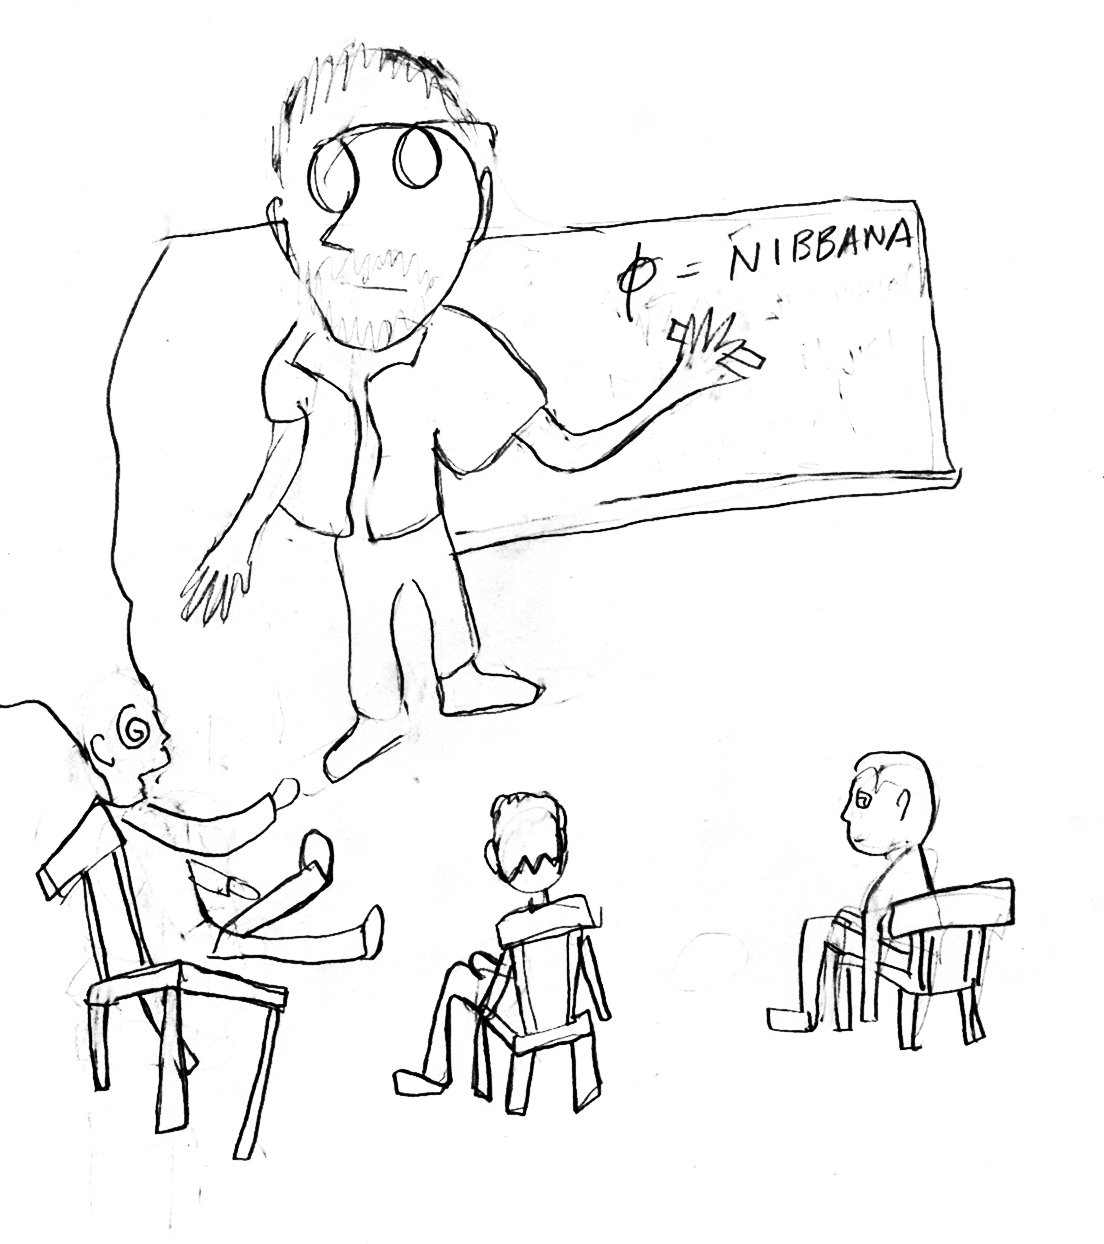 φ = NIBBANA